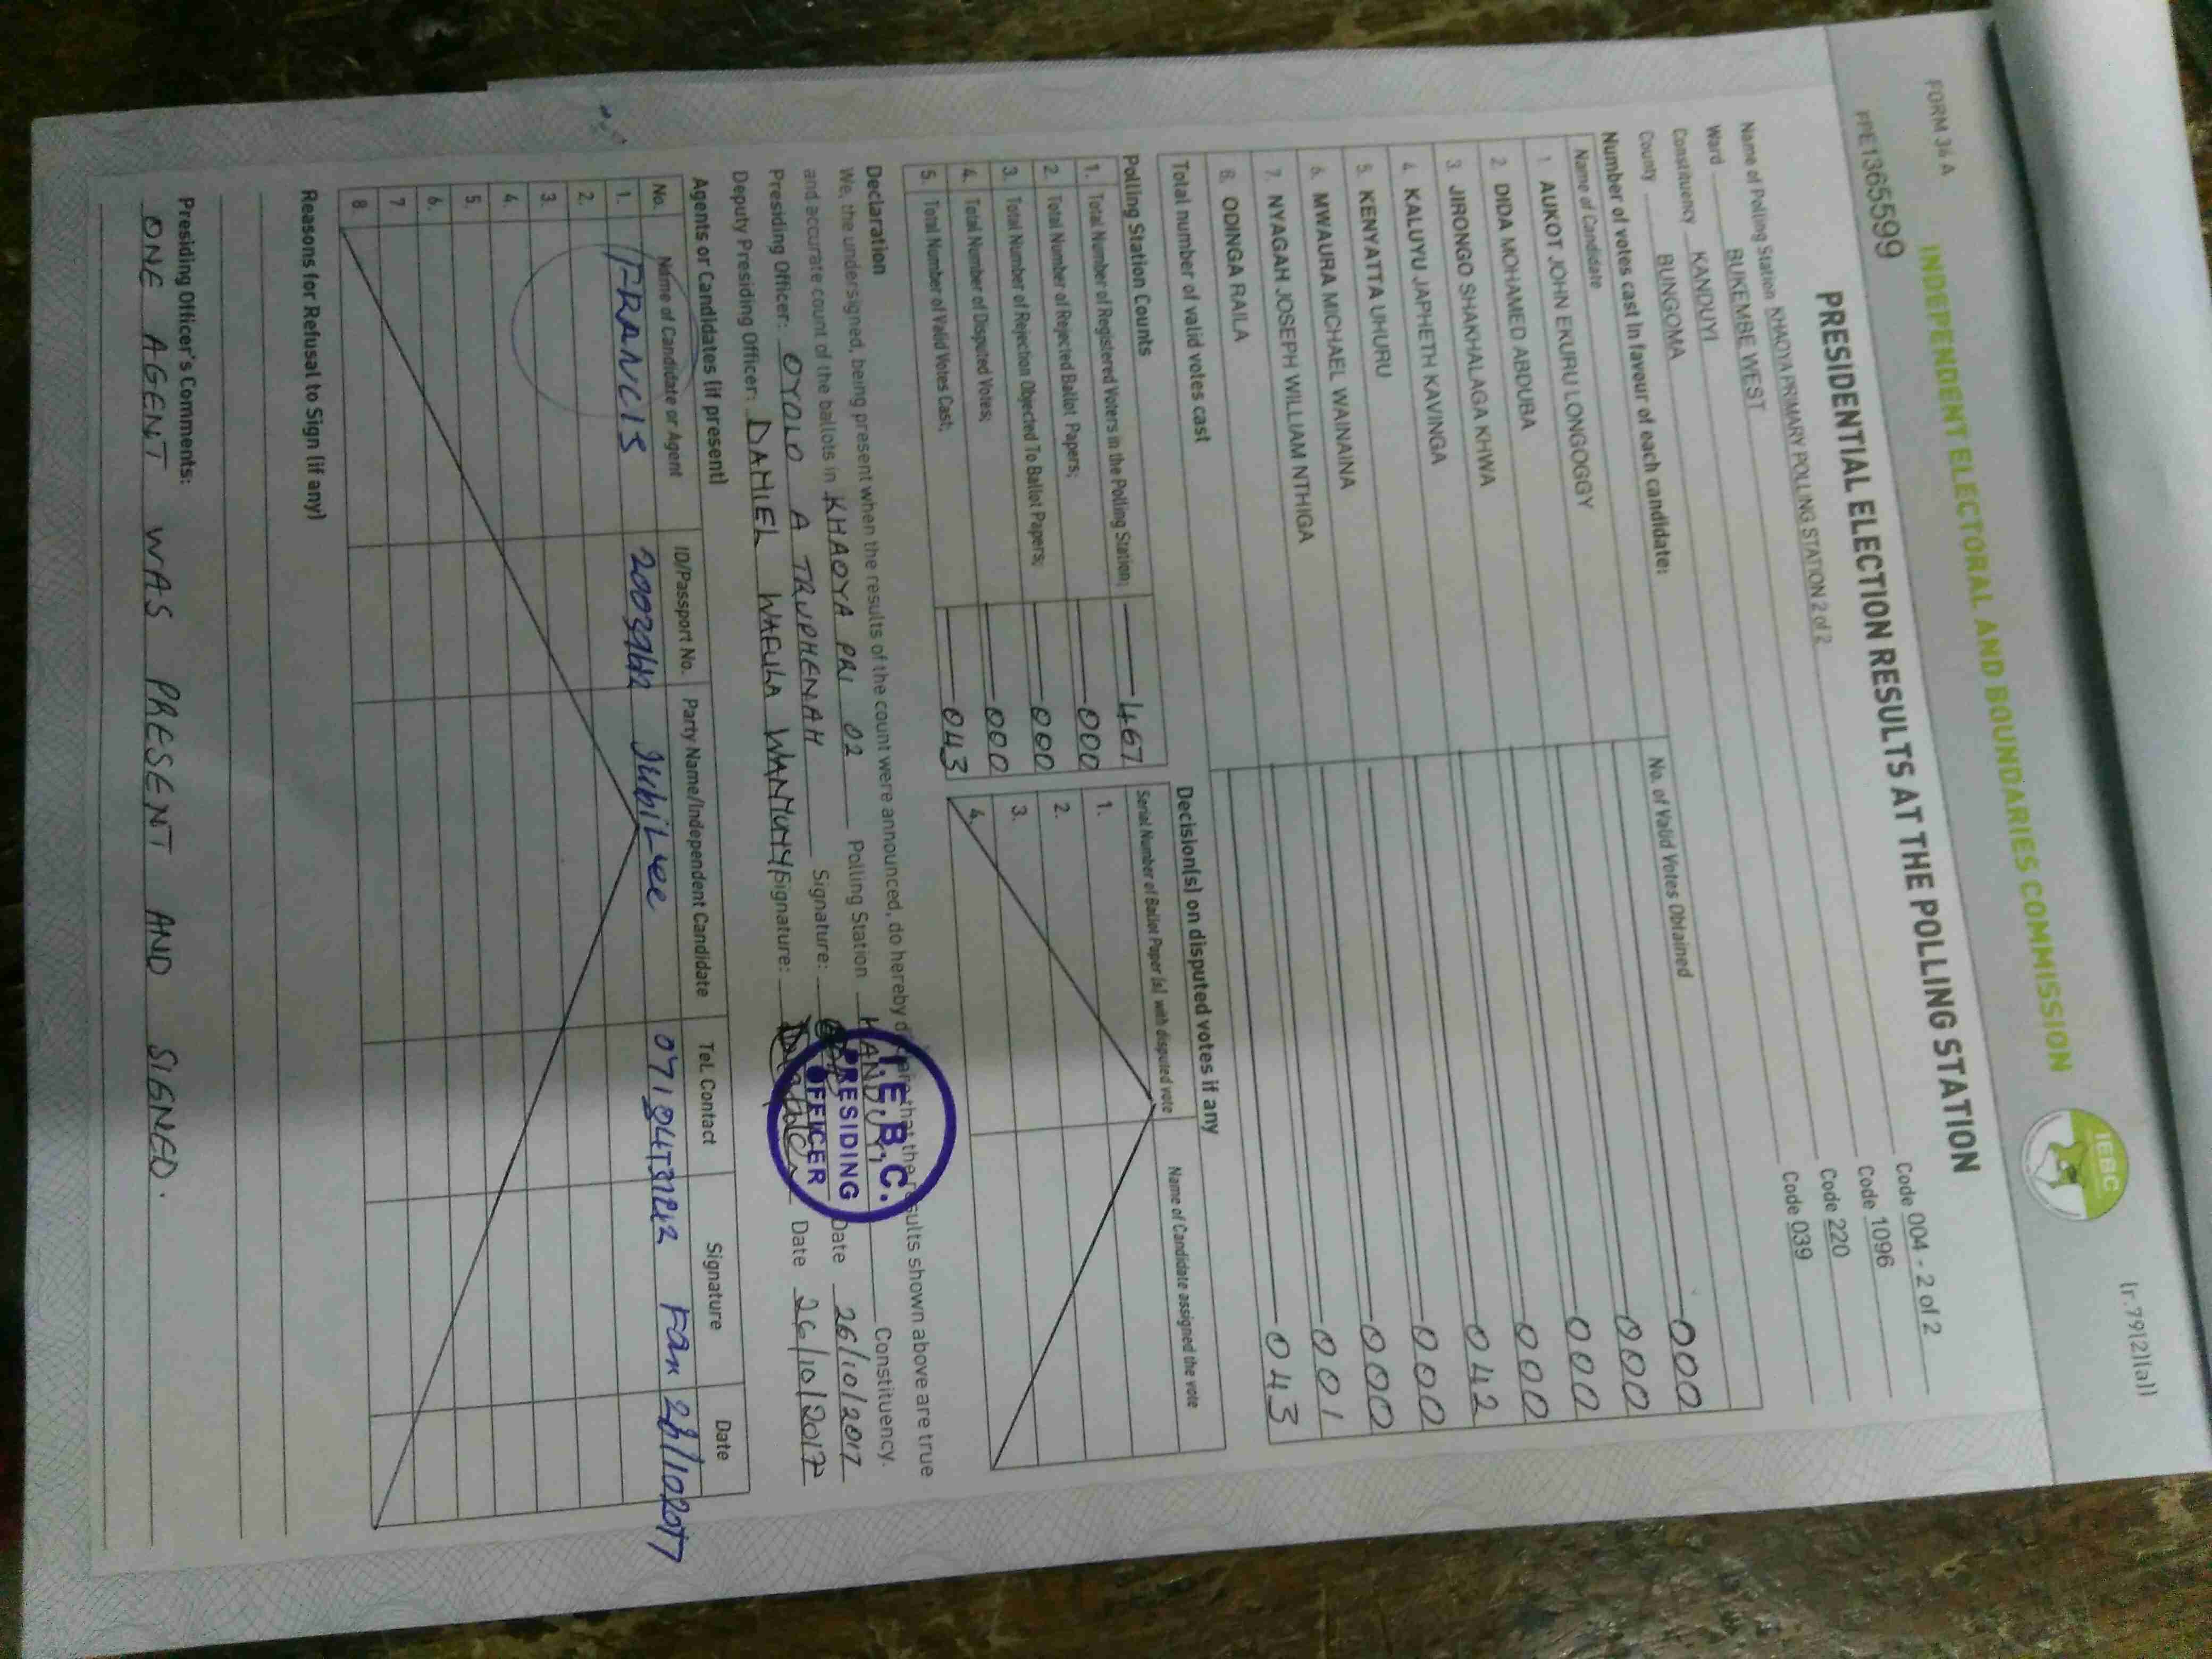 (r.79(2)(a))
FORM 34 A
INDEPENDENT ELECTORAL AND BOUNDARIES COMMISSION
IEBC
PPE1365599
PRESIDENTIAL ELECTION RESULTS AT THE POLLING STATION
Name of Polling Station KHAOYA PRIMARY POLLING STATION 2 of 2 Code 004 - 2 of 2
Ward BUKEMBE WEST Code 1096
Constituency KANDUYI Code 220
County BUNGOMA Code 039
Number of votes cast in favour of each candidate:
Name of Candidate No. of Valid Votes Obtained
1. AUKOT JOHN EKURU LONGOGGY 000
2. DIDA MOHAMED ABDUBA 000
3. JIRONGO SHAKHALAGA KHWA 000
4. KALUYU JAPHETH KAVINGA 000
5. KENYATTA UHURU 042
6. MWAURA MICHAEL WAINAINA 000
7. NYAGAH JOSEPH WILLIAM NTHIGA 000
8. ODINGA RAILA 001
Total number of valid votes cast 043
Polling Station Counts
1. Total Number of Registered Voters in the Polling Station; 467
2. Total Number of Rejected Ballot Papers; 000
3. Total Number of Rejection Objected To Ballot Papers; 000
4. Total Number of Disputed Votes; 000
5. Total Number of Valid Votes Cast; 043
Decision(s) on disputed votes if any
Serial Number of Ballot Paper (s) with disputed vote Name of Candidate assigned the vote
1.
2.
3.
4.
Declaration
We, the undersigned, being present when the results of the count were announced, do hereby declare that the results shown above are true
and accurate count of the ballots in KHAOYA PRI 02 Polling Station KANDUYI Constituency.
Presiding Officer: OYOLO A TRUPHENAH Signature: Date 26/10/2017
Deputy Presiding Officer: DANIEL WAFULA Signature: Date 26/10/2017
I.E.B.C.
PRESIDING
OFFICER
Agents or Candidates (if present)
No. Name of Candidate or Agent ID/Passport No. Party Name/Independent Candidate Tel. Contact Signature Date
1. FRANCIS JubiLee
2.
3.
4.
5.
6.
7
8.
Reasons for Refusal to Sign (if any)
Presiding Officer's Comments:
ONE AGENT WAS PRESENT AND SIGNED.